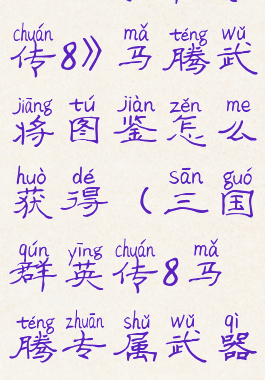 chuán mǎ téng wǔ
传8》马腾武
jiāng tú jiàn zěn me
将图鉴怎么
huò dé sān guó
获得（三国
qún yīng chuán mǎ
群英传8马
téng zhuān shǔ wǔ qì
腾专属武器